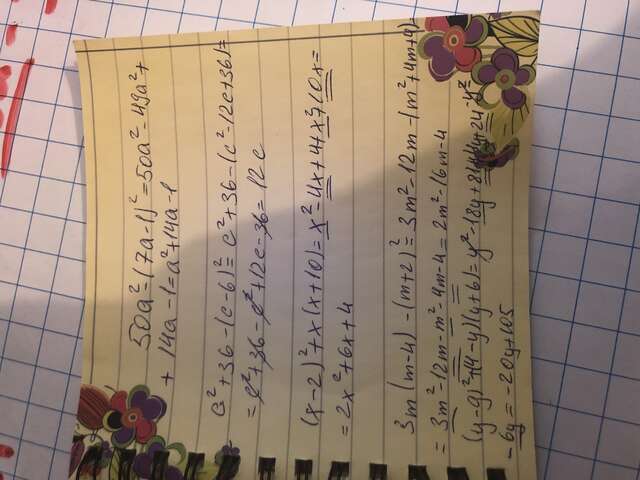 50a²-(7a-1)²=50a²-49a²+
+ 14a-1=a²+14a-1
c²+36-(c-6)²=c²+36-(c²-12c+36)=
=c²+36-c²+12c-36=12c
(x-2)²+x(x+10)=x²-4x+4+x²+10x=
=2x²+6x+4
3m(m-4)-(m+2)²=3m²-12m-(m²+4m+4)
=3m²-12m-m²-4m-4=2m²-16m-4
(y-9)²+(4-y)(y+6)=y²-18y+81+4y+24-y²
-6y=-20y+105